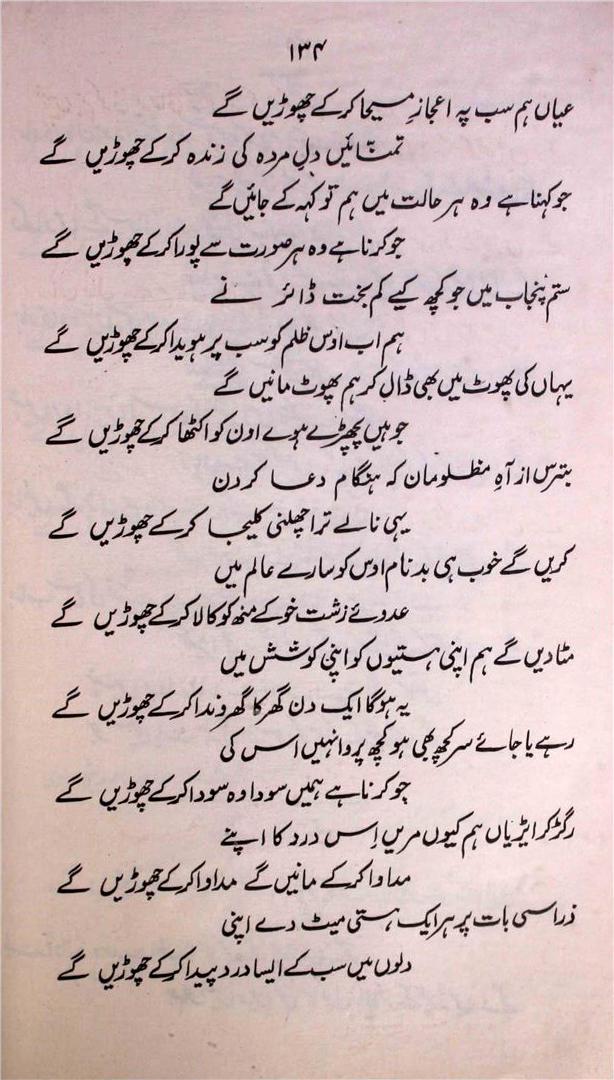 ۱۳۴
عیاں ہم سب پہ اعجازِ مسیحا کر کے چھوڑیں گے
تمنّائیں دلِ مردہ کی زندہ کر کے چھوڑیں گے
جو کہنا ہے وہ ہر حالت میں ہم تو کہہ کے جائیں گے
جو کرنا ہے وہ ہر صورت سے پورا کر کے چھوڑیں گے
ستم پنجاب میں جو کچھ کیے کم بخت ڈائر نے
ہم اب اوس ظلم کو سب پر ہویدا کر کے چھوڑیں گے
یہاں کی پھوٹ میں بھی ڈال کر ہم پھوٹ مانیں گے
جو ہیں بچھڑے ہوے اون کو اکٹھا کر کے چھوڑیں گے
بترس از آہِ مظلومان کہ ہنگام دعا کردن
یہی نالے ترا چھلنی کلیجا کر کے چھوڑیں گے
کریں گے خوب ہی بدنام اوس کو سارے عالم میں
عدوئے زشت خو کے منھ کو کالا کر کے چھوڑیں گے
مٹا دیں گے ہم اپنی ہستیوں کو اپنی کوشش میں
یہ ہوگا ایک دن گھر کا گھروندا کر کے چھوڑیں گے
رہے یا جائے سر کچھ بھی ہو کچھ پروا نہیں اس کی
جو کرنا ہے ہمیں سودا وہ سودا کر کے چھوڑیں گے
رگڑ کر ایڑیاں ہم کیوں مریں اِس درد کا اپنے
مداوا کر کے مانیں گے مداوا کر کے چھوڑیں گے
ذرا سی بات پر ہر ایک ہستی میٹ دے اپنی
دلوں میں سب کے ایسا درد پیدا کر کے چھوڑیں گے